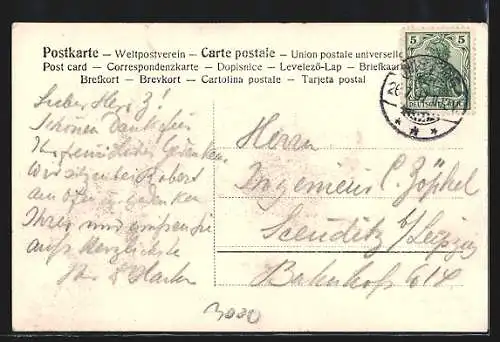 Postkarte – Weltpostverein – Carte postale – Union postale universelle
Post card – Correspondenzkarte – Dopisnice – Levelező-Lap – Briefkaart
Brefkort – Brevkort – Cartolina postale – Tarjeta postal
5 5
DEUTSCHES REICH
26
Lieber Herr Z!
Schönen Dank für
Ihr freundliches Gedenken.
Wir sitzen bei Robert
am Ofen u. gedenken
Ihrer und grüßen Sie
aufs Herzlichste
Herrn
Ingenieur C. Zöphel
Sceuditz b/Leipzig
Bahnhofs 614
3000